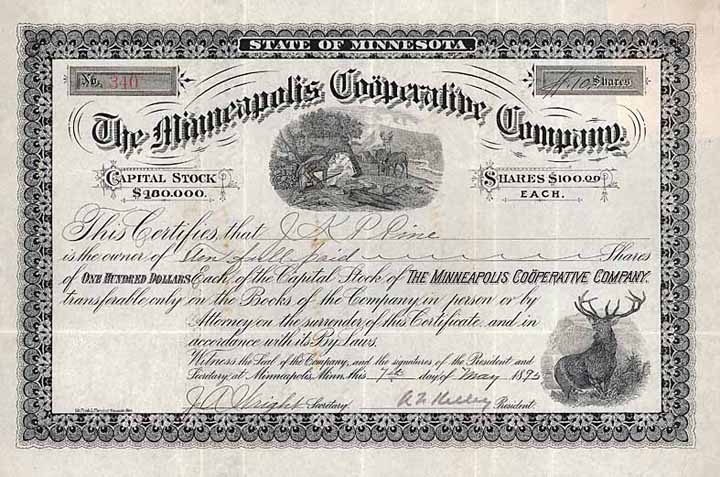 STATE OF MINNESOTA
No. 340
10 Shares
The Minneapolis Coöperative Company.
CAPITAL STOCK
$180.000.
SHARES $100.00
EACH.
This Certifies, that J K P Pine
is the owner of Ten full paid Shares
of ONE HUNDRED DOLLARS Each, of the Capital Stock of THE MINNEAPOLIS COÖPERATIVE COMPANY.
transferable only on the Books of the Company in person or by
Attorney on the surrender of this Certificate, and in
accordance with its By Laws.
Witness the Seal of the Company, and the signatures of the President and
Secretary, at Minneapolis, Minn. this 7th day of May 189
J A Wright Secretary. President.